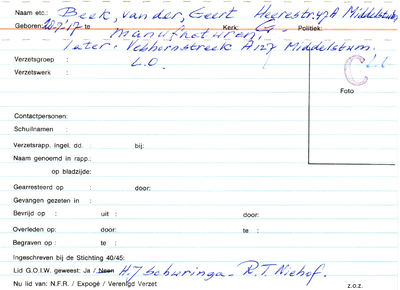 Naam etc.: Beek, van der, Geert Heerestr. 47A Middelstum
Geboren: 20/2/'17 te manufacturen, Kerk: G. Politiek:
later: Verhornstreek A127 Middelstum.
Verzetsgroep :
L.O.
Verzetswerk :
C
Foto
Contactpersonen:
Schuilnamen :
Verzetsrapp. ingel. dd. : bij:
Naam genoemd in rapp.:
op bladzijde:
Gearresteerd op : door:
Gevangen gezeten in :
Bevrijd op : uit : door:
Overleden op: door: te :
Begraven op : te :
Ingeschreven bij de Stichting 40/45:
Lid G.O.I.W. geweest: Ja / Neen H.J. Schuringa - R.T. Niehof.
Nu lid van: N.F.R. / Expogé / Verenigd Verzet
z.o.z.